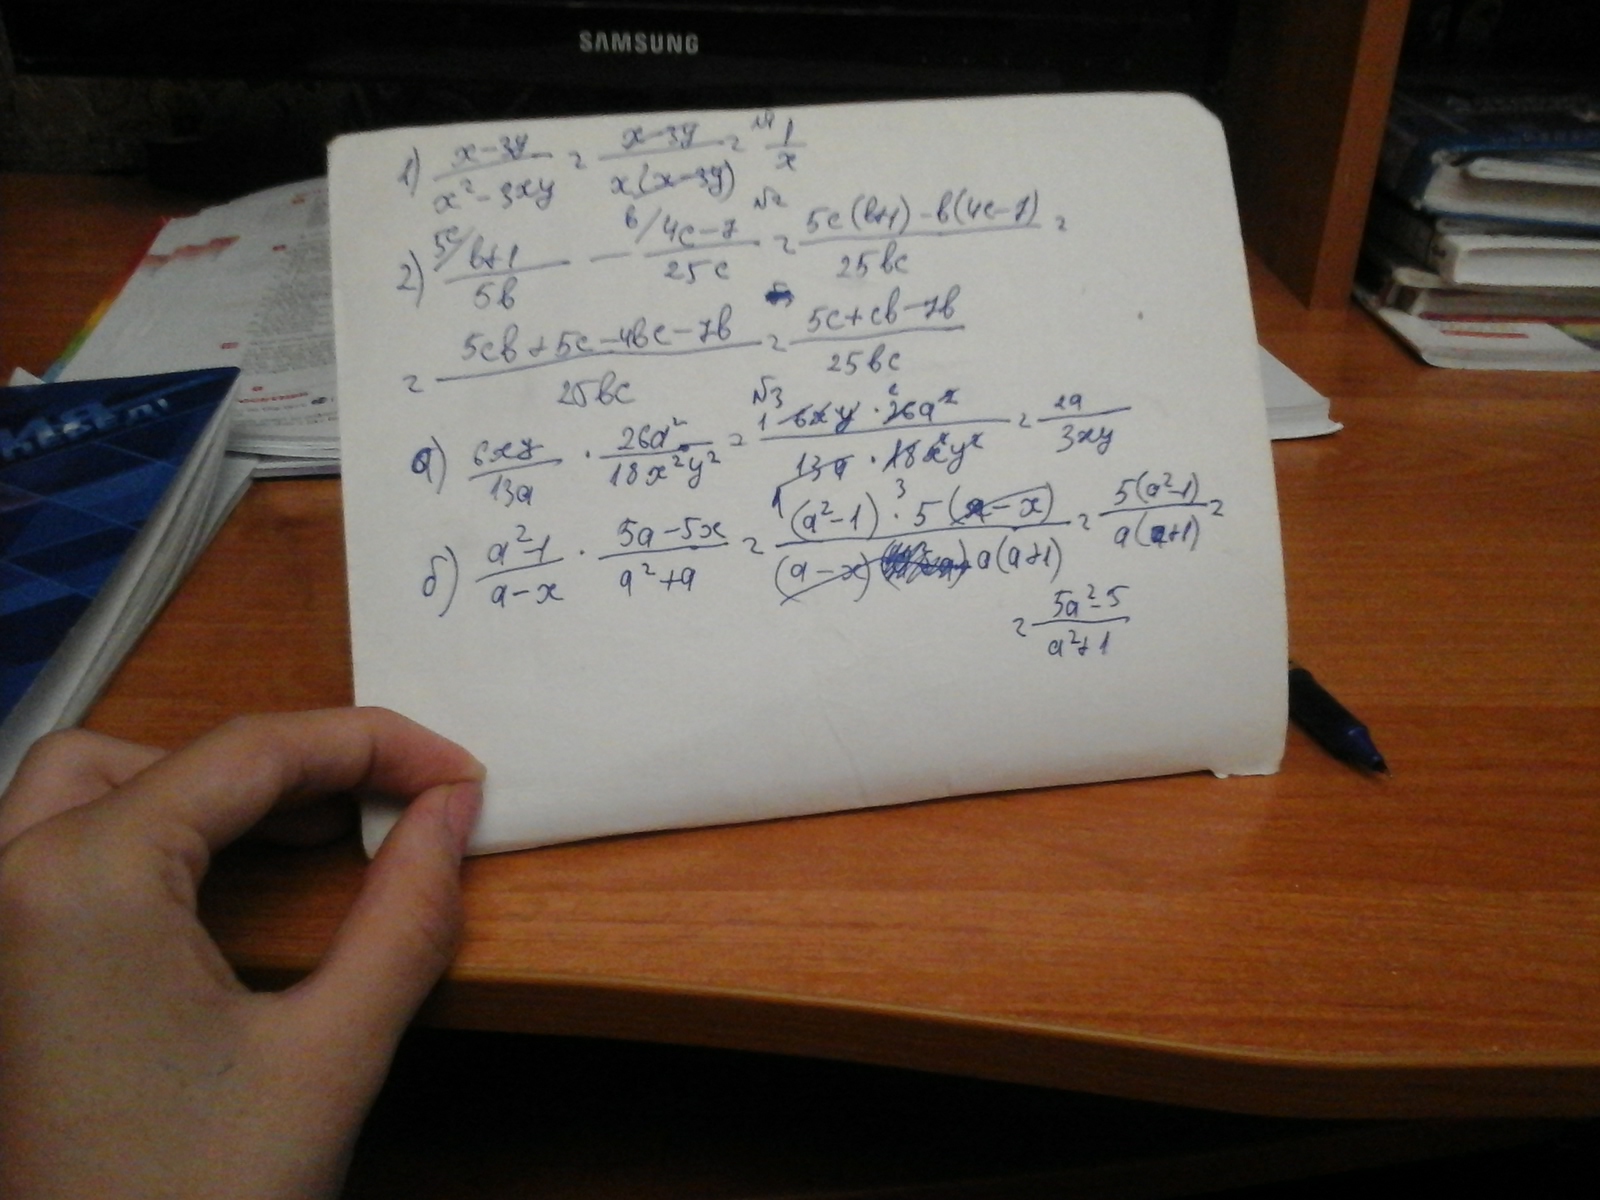 SAMSUNG
№1
1) (x-3y)/(x²-3xy) = (x-3y)/(x(x-3y)) = 1/x
№2
2) 5c/ (в+1)/(5в) - в/ (4c-7)/(25c) = (5c(в+1)-в(4c-7))/(25вc) =
= (5cв+5c-4вc-7в)/(25вc) = (5c+cв-7в)/(25вc)
№3
а) (6xy)/(13a) · (26a²)/(18x²y²) = (1 6xy · 26a² 2)/(13a · 18x²y² 1 3) = (2a)/(3xy)
б) (a²-1)/(a-x) · (5a-5x)/(a²+a) = ((a²-1) · 5(a-x))/((a-x) a(a+1)) = (5(a²-1))/(a(a+1)) =
= (5a²-5)/(a²+1)